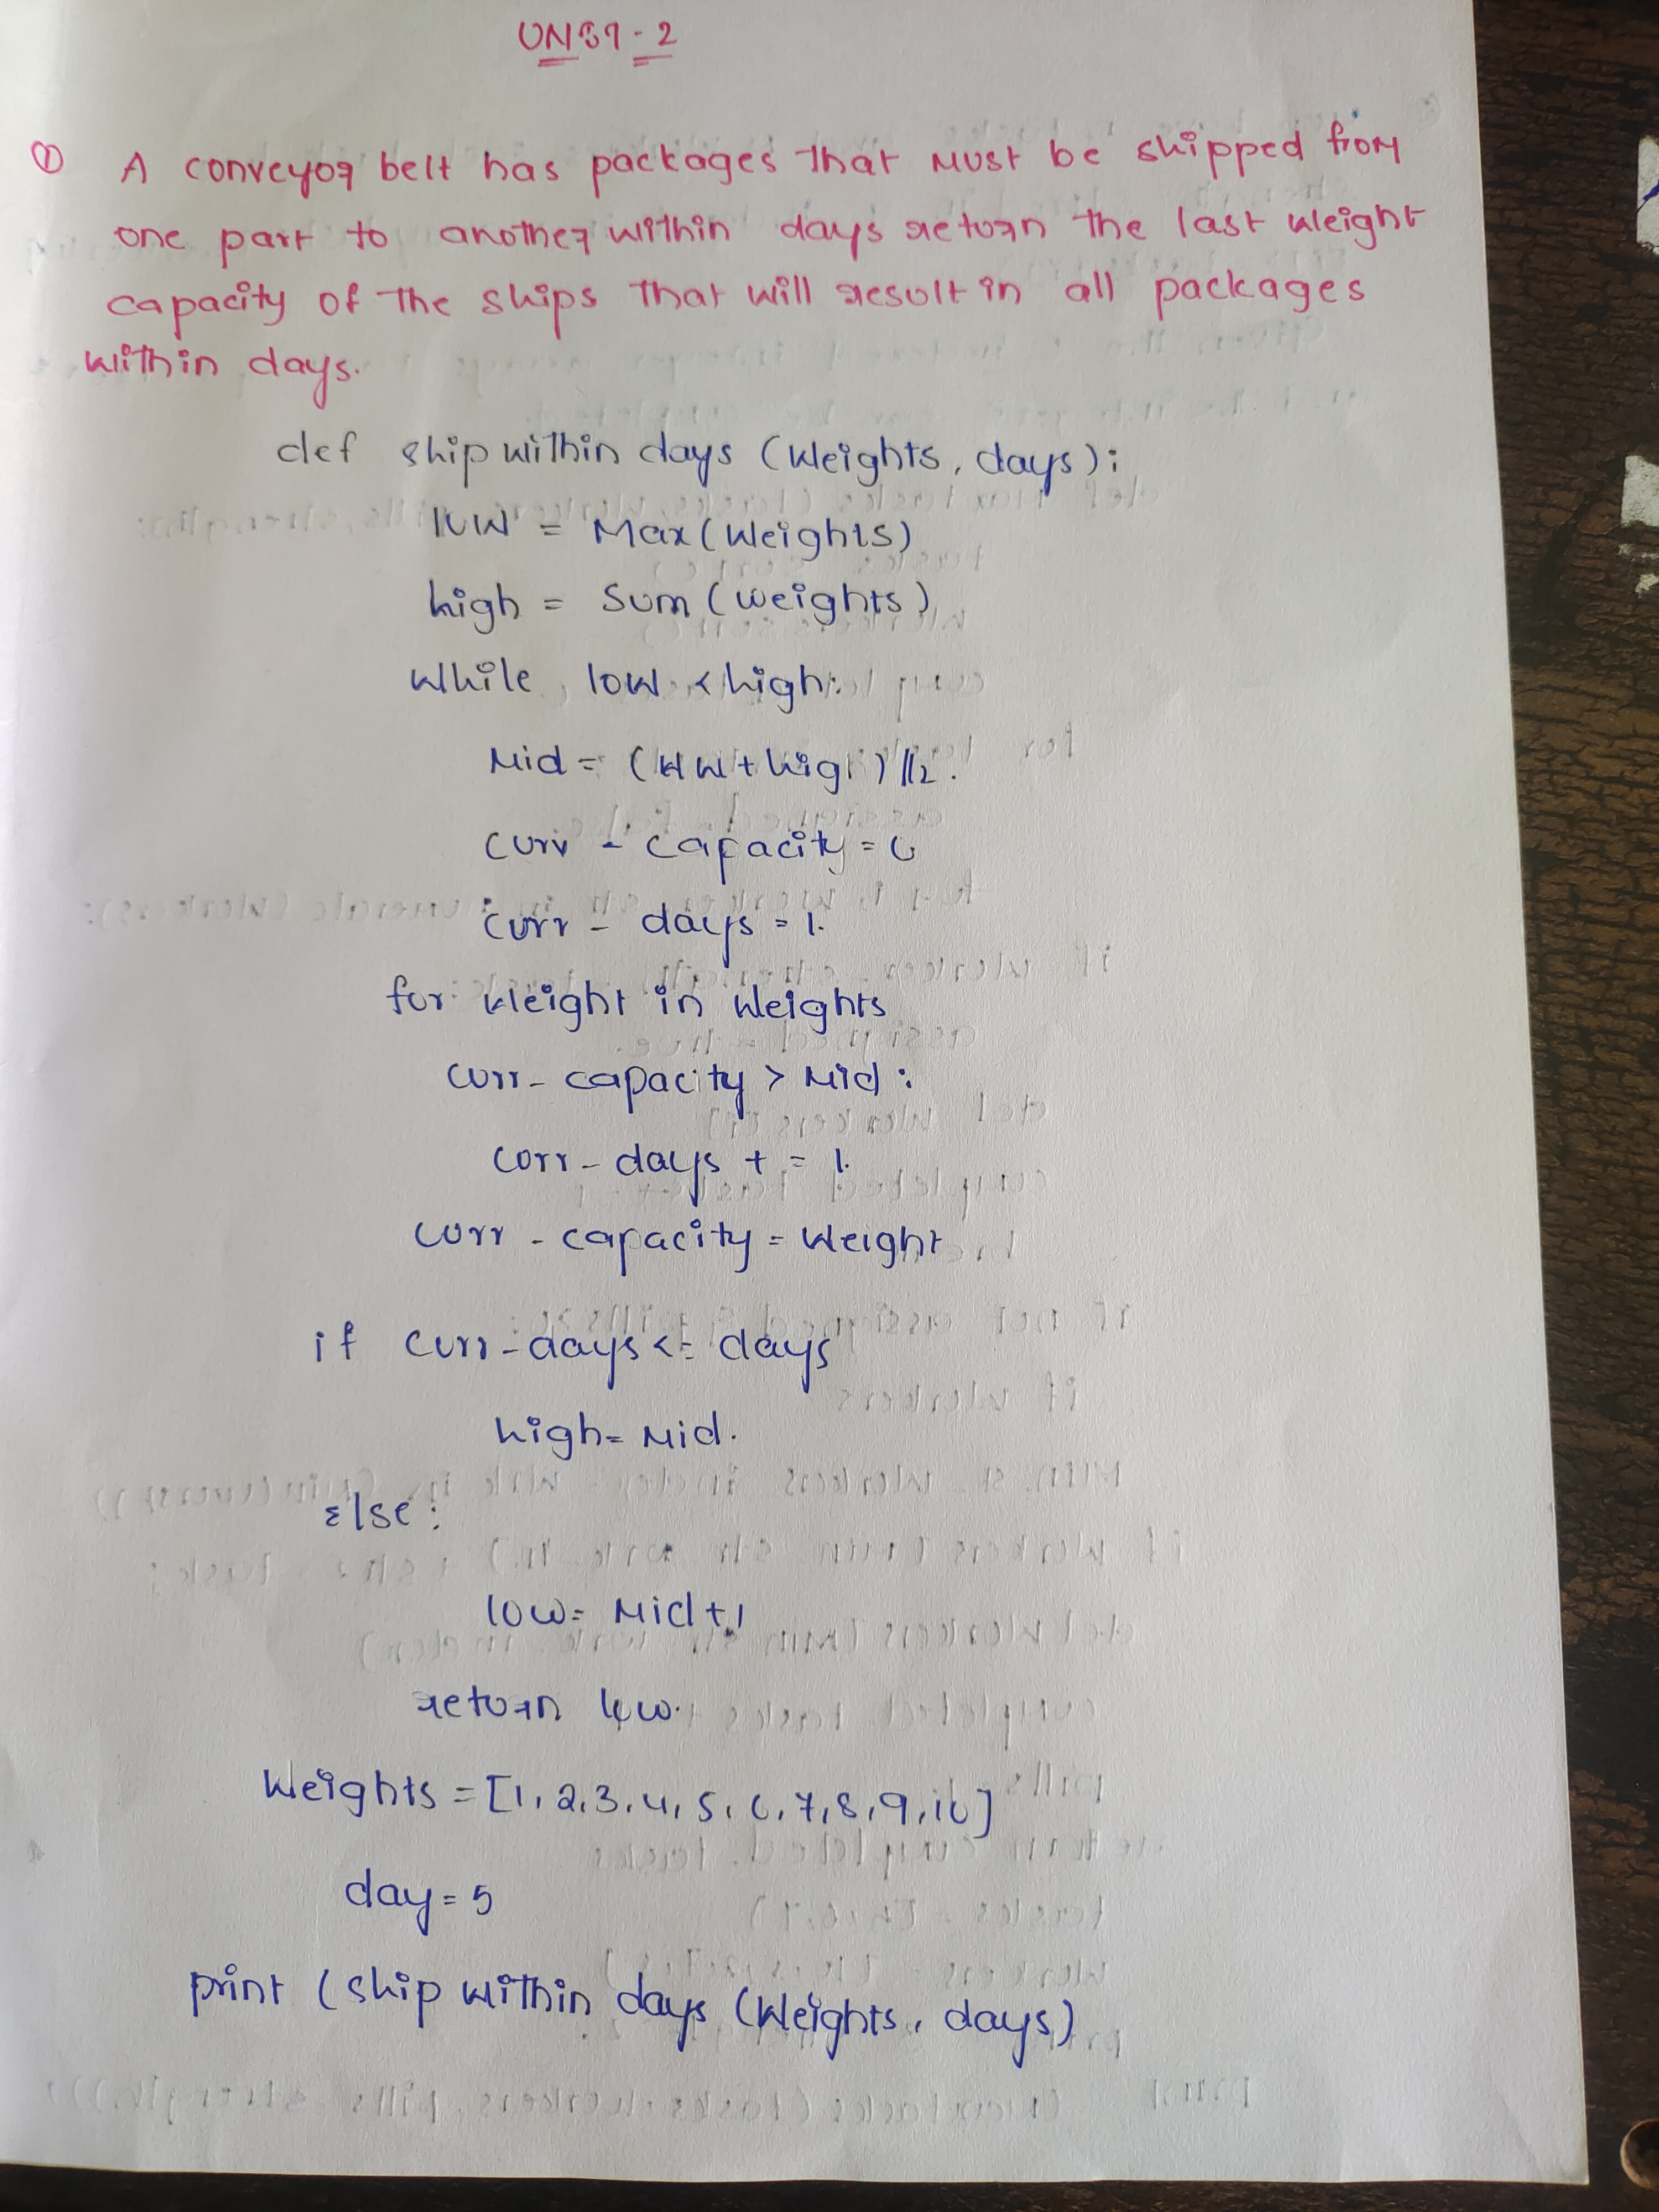 UNIT-2
① A conveyor belt has packages that must be shipped from
one part to another within days return the last weight
capacity of the ships that will result in all packages
within days.
def ship within days (weights, days):
low = Max (weights)
high = sum (weights)
while low < high:
Mid = (low + high) // 2.
curr - capacity = 0
curr - days = 1.
for weight in weights
curr - capacity > Mid :
corr - days + = 1.
curr - capacity = weight
if curr - days <= days
high = Mid.
Else :
low = Mid + 1
return low.
Weights = [1, 2, 3, 4, 5, 6, 7, 8, 9, 10]
day = 5
print (ship within days (weights, days)